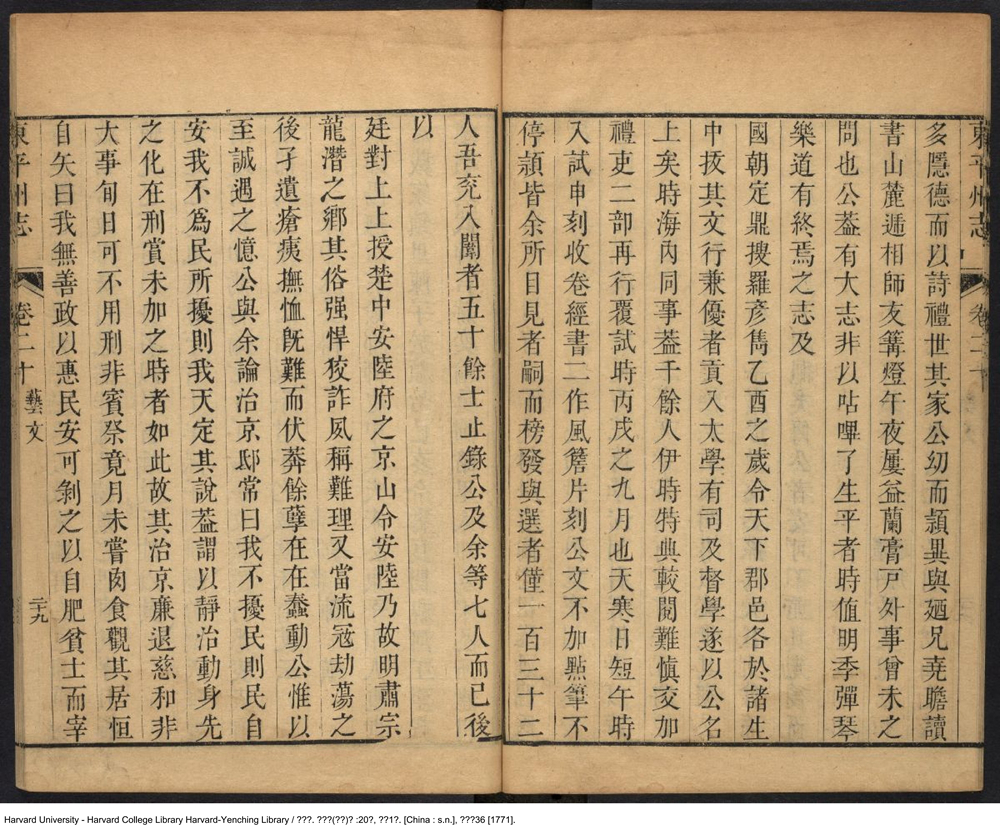 東平州志
卷二十
多隱德而以詩禮世其家公幼而頴異與廼兄堯瞻讀
書山麓遞相師友篝燈午夜屢益蘭膏戸外事曾未之
問也公葢有大志非以呫嗶了生平者時值明季彈琴
樂道有終焉之志及
國朝定鼎搜羅彥雋乙酉之歲令天下郡邑各於諸生
中拔其文行兼優者貢入太學有司及督學遂以公名
上矣時海內同事葢千餘人伊時特典較閱難慎交加
禮吏二部再行覆試時丙戌之九月也天寒日短午時
入試申刻收卷經書二作風簷片刻公文不加㸃筆不
停頴皆余所目見者嗣而榜發與選者僅一百三十二
人吾兗入闈者五十餘士止錄公及余等七人而已後
以
廷對上上授楚中安陸府之京山令安陸乃故明肅宗
龍潛之鄉其俗强悍狡詐夙稱難理又當流冦劫蕩之
後孑遺瘡痍撫恤旣難而伏莽餘孽在在蠢動公惟以
至誠遇之憶公與余論治京邸常曰我不擾民則民自
安我不爲民所擾則我天定其說葢謂以靜治動身先
之化在刑賞未加之時者如此故其治京亷退慈和非
大事旬日可不用刑非賓祭竟月未嘗肉食觀其居恒
自矢曰我無善政以惠民安可剝之以自肥貧士而宰
東平州志
卷二十
藝文
二十九
Harvard University - Harvard College Library Harvard-Yenching Library / ???. ???(??)? :20?, ??1?. [China : s.n.], ???36 [1771].